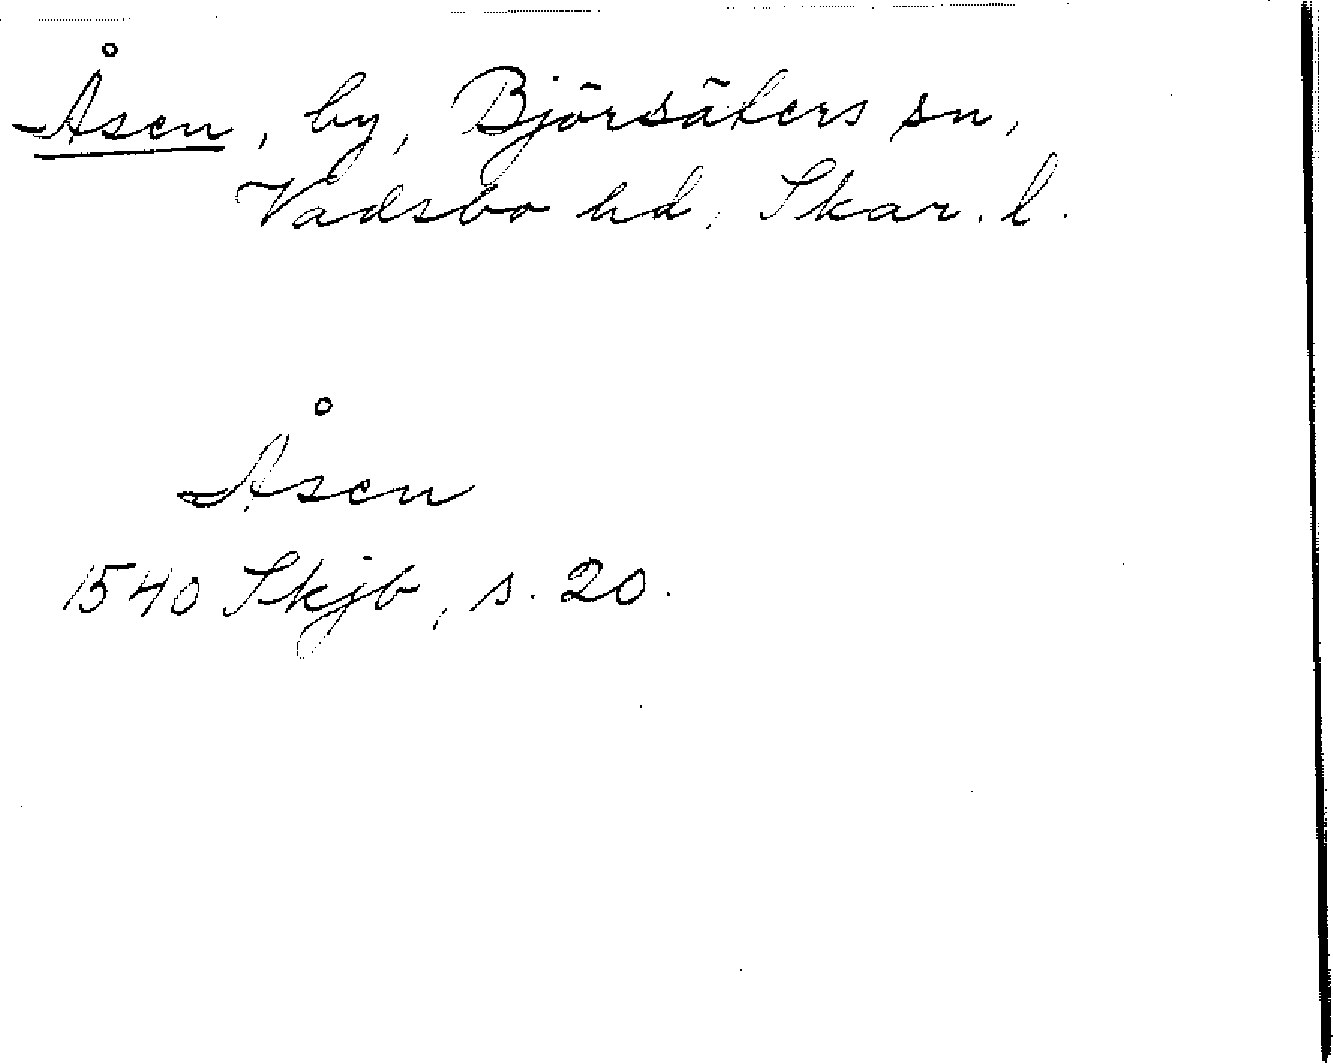 Åsen, by, Björsäters sn,
Vadsbo hd, Skar. l.
Åsen
1540 Skjb, s. 20.